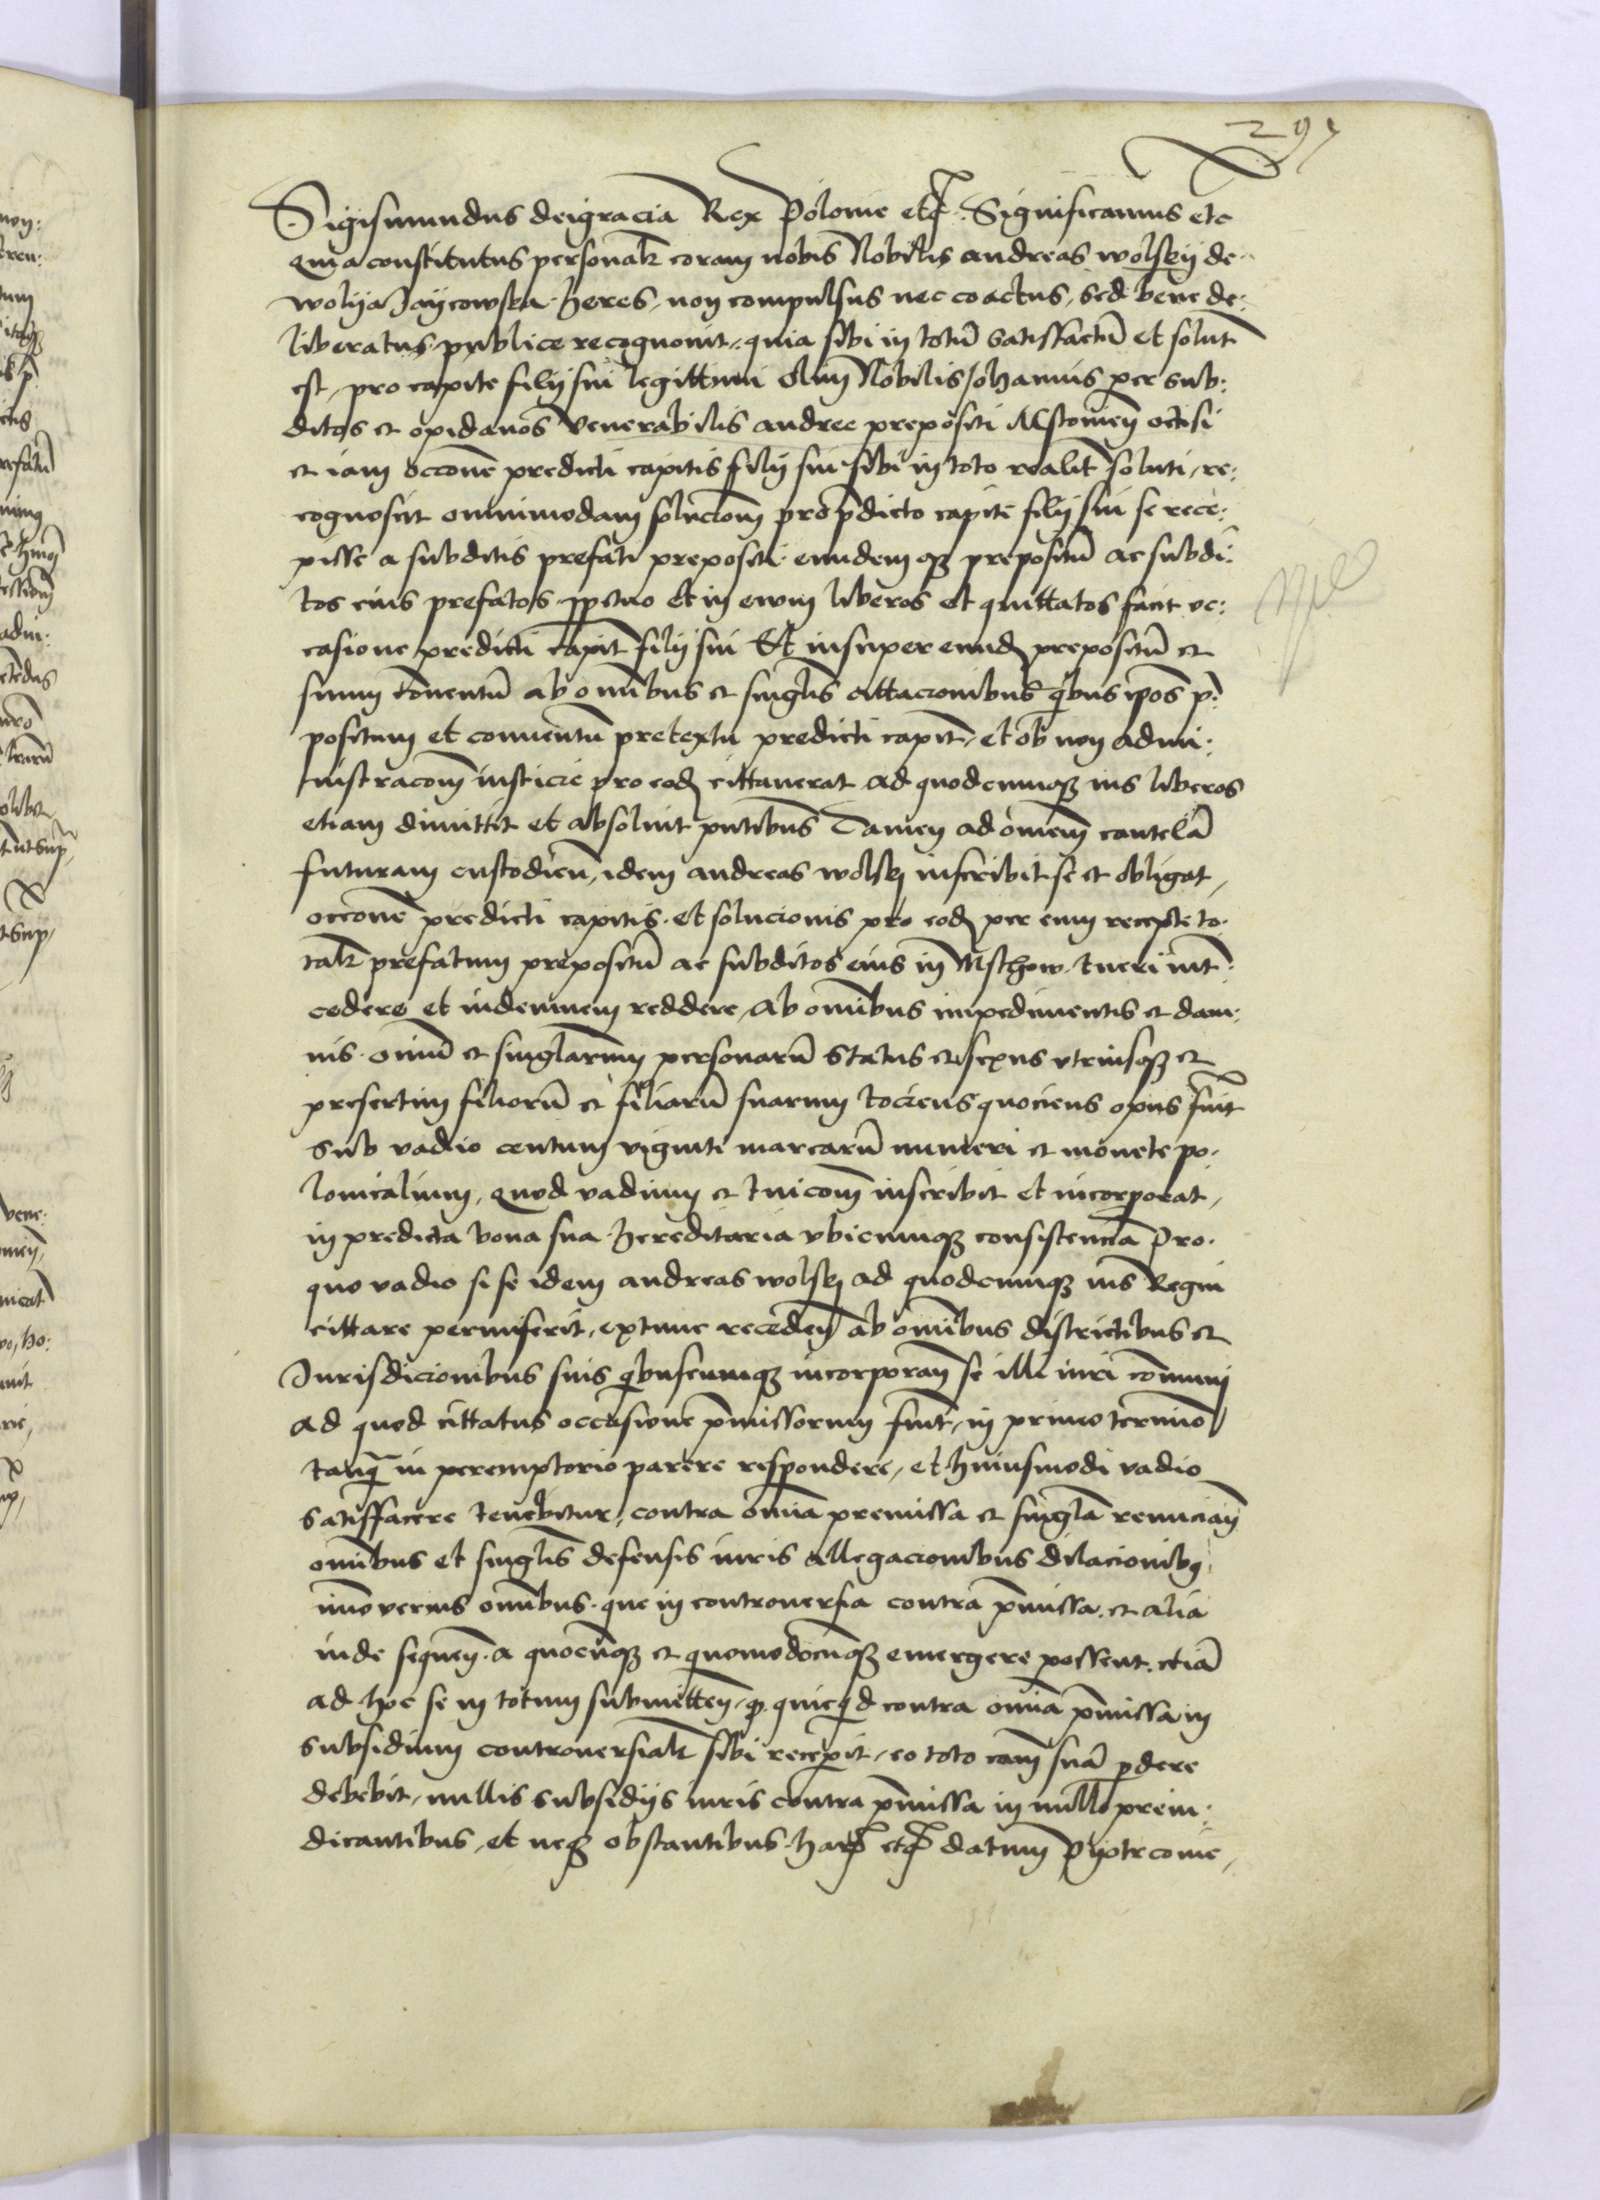 297
Sigismundus dei gracia Rex Polonie etc. Significamus etc
quia constitutus personalr coram nobis Nobilis andreas wolskij de
wolija Jaijcowska heres, non compulsus nec coactus, sed bene de:
liberatus publice recognouit, quia sibi in totū satisfactū et solut
est, pro capite filij sui legittimi olim Nobilis Johannis per sub:
ditos et opidanos venerabilis andree prepositi Mstouieñ occisi
et iam occone predicti capitis filij sui sibi in toto realit soluti, re:
cognoscit omnimodam soluciom pro pdicto capite filij sui se rece:
pisse a subditis prefati prepositi eundemqz prepositū ac subdi:
tos eius prefatos ppetuo et in ewm liberos et quittatos facit oc:
casione predicti capit filij sui Et insuper eund prepositū et
suum conuentū ab omibus et singlis cittacionibus qbus ipos p:
positum et conuentū pretextu predicti capit, et ob non admi:
nistraciom iusticie pro eod cittauerat ad quodcumqz ius liberos
etiam dimittit et absoluit pntibus Tamen ad omem cautelā
futuram custodieñ, idem andreas wolskj inscribit se et obligat,
occone predicti capitis et solucionis pro eod per eum recepte to:
talr prefatum prepositū ac subditos eius in Mschow tueri int:
cedere et indemnem reddere, ab omibus impedimentis et dam:
nis omiū et singlarum personarū status et sexus vtriusqz et
presertim filiorū et filiarū suarum tociens quociens opus fuit
sub vadio centum viginti marcarū numeri et monete po:
lonicalium, quod vadium et tuicom inscribit et incorporat,
in predicta bona sua hereditaria vbicumqz consistencia Pro
quo vadio si se idem andreas wolskj ad quodcumqz ius Regni
cittare permiserit, extunc recedeñ ab omibus districtibus et
Jurisdicionibus suis qbuscumqz incorporañ se illi iuri comuni
ad quod cittatus occasione pmissorum fuit, in primo termino
tanq in peremptorio parere respondere, et huiusmodi vadio
satisfacere tenebitur, contra omia premissa et singla renunciañ
omibus et singlis defensis iuris allegacionibus dilacionibq
imouerius omibus que in controuersia contra pmissa et alia
inde sequeñ a quocūqz et quomodocūqz emergere possent etiā
ad hoc se in totum submitteñ, q quicqd contra omia pmissa in
subsidium controuersialr sibi receperit, eo toto cam suā pdere
debebit, nullis subsidijs iuris contra pmissa in nullo preiu:
dicantibus, et neqz obstantibus harp etc datum Pijotrcouie,